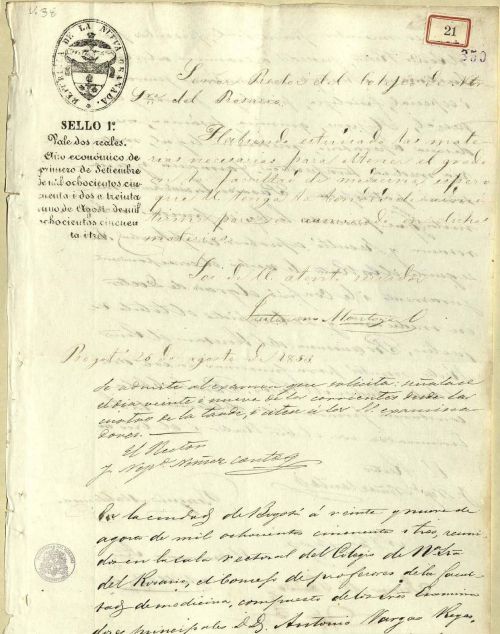 21
350
REPUBLICA DE LA NUEVA GRANADA.
SELLO 1º
Vale dos reales.
Año económico de
primero de Setiembre
de mil ochocientos cin-
cuenta i dos a treinta
i uno de Agosto de mil
ochocientos cincuen-
ta i tres.
Señor Rector del Colejio de Ntra
Sra del Rosario.
Habiendo las mate
rias necesarias para obtener el grado
de medicina, espero
que
materias
Soi de U. atento servidor
Bogotá 26 de agosto de 1853
Se admite al examen que solicita: señálase
el dia veinte i nueve de los corrientes desde las
cuatro de la tarde, i cítese a los SS examina
dores.
El Rector
J. Nepº Núñez Conto
En la ciudad de Bogotá á veinte y nueve de
agosto de mil ochocientos cincuenta i tres, reuni
do en la sala rectoral del Colegio de Ntra Sra
del Rosario, el Consejo de profesores de la facul
tad de medicina, compuesto de los tres Examina
dores principales DD. Antonio Vargas Reyes,